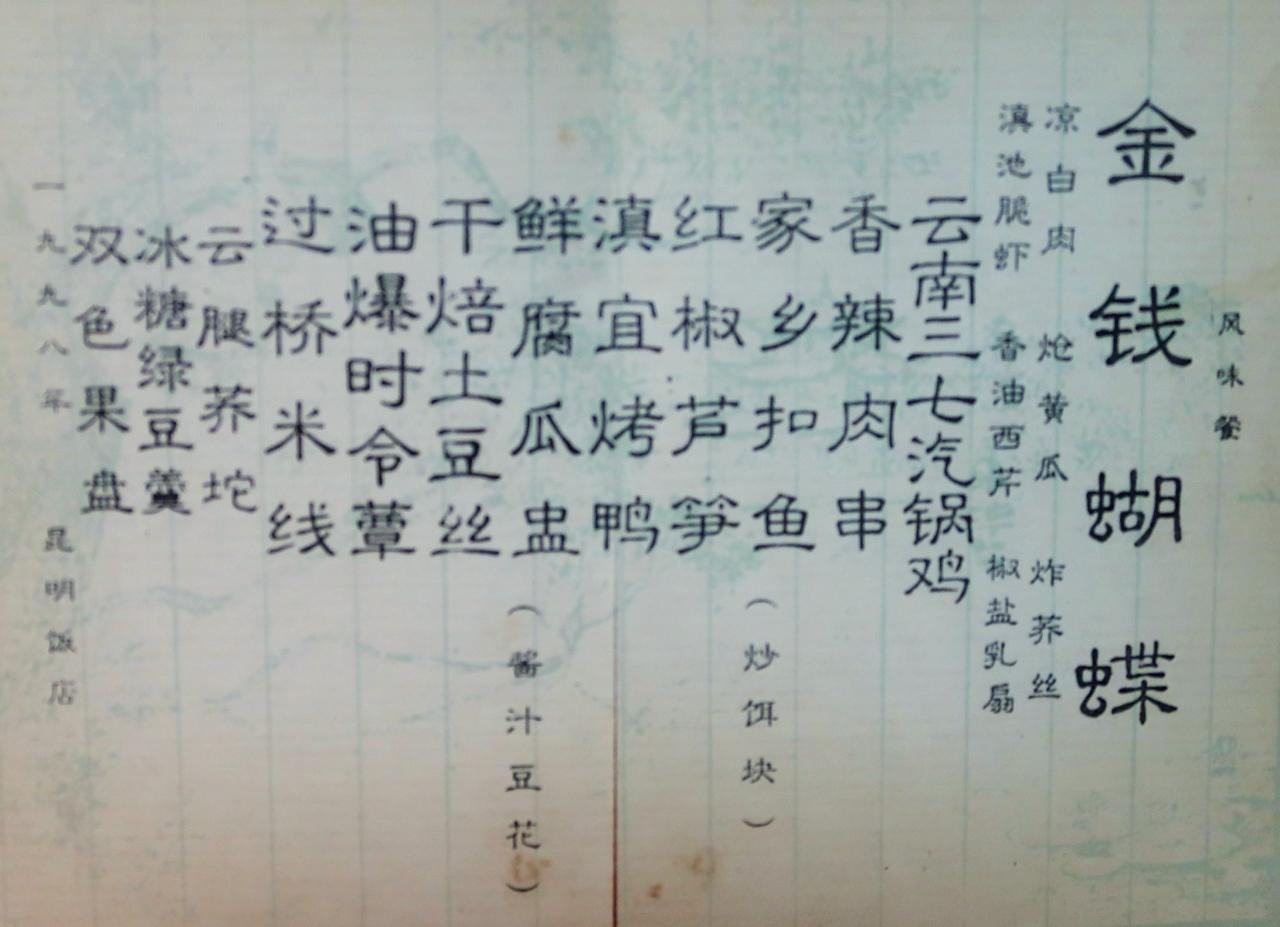 风味餐
金钱蝴蝶
凉白肉 炝黄瓜 炸荞丝
滇池脆虾 香油西芹 椒盐乳扇
云南三七汽锅鸡
香辣肉串
家乡扣鱼（炒饵块）
红椒芦笋
滇宜烤鸭
鲜腐瓜盅（酱汁豆花）
干焙土豆丝
油爆时令蕈
过桥米线
云腿荞坨
冰糖绿豆羹
双色果盘
一九九八年 昆明饭店